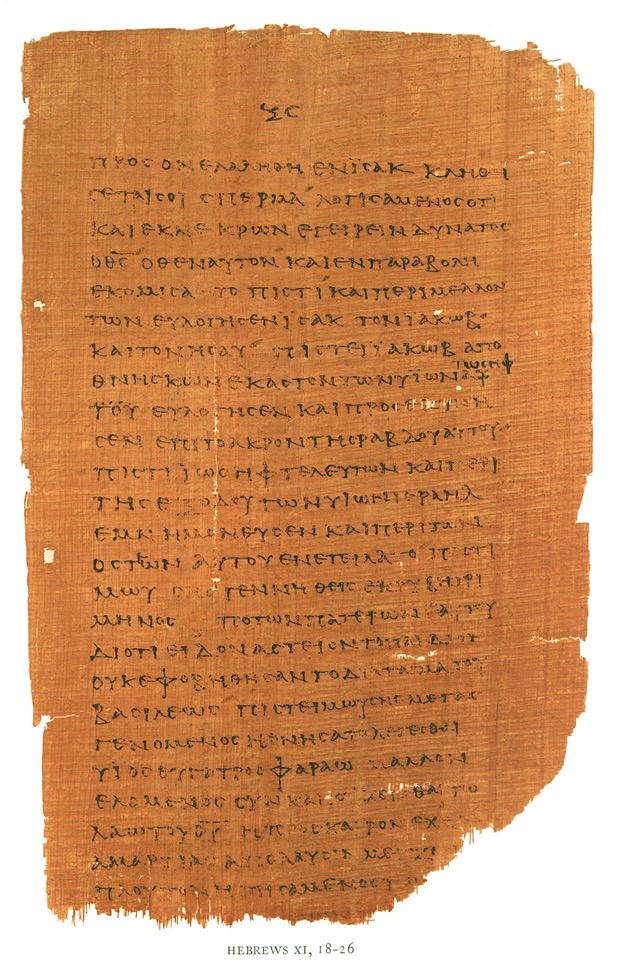 ΠΡΟϹ ΟΝ ΕΛΑΛΗΘΗ ΕΝ ΙϹΑΚ ΚΛΗΘΗ
ϹΕΤΑΙ ϹΟΙ ϹΠΕΡΜΑ ΛΟΓΙϹΑΜΕΝΟϹ ΟΤΙ
ΚΑΙ ΕΚ ΝΕΚΡΩΝ ΕΓΕΙΡΕΙΝ ΔΥΝΑΤΟϹ
Ο Θ̅Ϲ̅ ΟΘΕΝ ΑΥΤΟΝ ΚΑΙ ΕΝ ΠΑΡΑΒΟΛΗ
ΕΚΟΜΙϹΑΤΟ ΠΙϹΤΙ ΚΑΙ ΠΕΡΙ ΜΕΛΛΟΝ
ΤΩΝ ΕΥΛΟΓΗϹΕΝ ΙϹΑΚ ΤΟΝ ΪΑΚΩΒ
ΚΑΙ ΤΟΝ ΗϹΑΥ ΠΙϹΤΕΙ ΪΑΚΩΒ ΑΠΟ
ΙΩϹΗΦ
ΘΝΗϹΚΩΝ ΕΚΑϹΤΟΝ ΤΩΝ ΥΪΩΝ
ΕΥΛΟΓΗϹΕΝ ΚΑΙ ΠΡΟϹΕΚΥΝΗ
ϹΕΝ ΕΠΙ ΤΟ ΑΚΡΟΝ ΤΗϹ ΡΑΒΔΟΥ ΑΥΤΟΥ
ΠΙϹΤΙ ΙΩϹΗΦ ΤΕΛΕΥΤΩΝ ΚΑΙ ΠΕΡΙ
ΤΗϹ ΕΞΟΔΟΥ ΤΩΝ ΥΙΩΝ ΙϹΡΑΗΛ
ΕΜΝΗΜΟΝΕΥϹΕΝ ΚΑΙ ΠΕΡΙ ΤΩΝ
ΟϹΤΕΩΝ ΑΥΤΟΥ ΕΝΕΤΕΙΛΑΤΟ ΠΙϹΤΙ
ΜΩΥϹΗϹ ΓΕΝΝΗΘΕΙϹ ΕΚΡΥΒΗ ΤΡΙ
ΜΗΝΟΝ ΥΠΟ ΤΩΝ ΠΑΤΕΡΩΝ ΑΥΤΟΥ
ΔΙΟΤΙ ΕΙΔΟΝ ΑϹΤΕΙΟΝ ΤΟ ΠΑΙΔΙΟΝ
ΟΥΚ ΕΦΟΒΗΘΗϹΑΝ ΤΟ ΔΙΑΤΑΓΜΑ ΤΟΥ
ΒΑϹΙΛΕΩϹ ΠΙϹΤΕΙ ΜΩΥϹΗϹ ΜΕΓΑϹ
ΓΕΝΟΜΕΝΟϹ ΗΡΝΗϹΑΤΟ ΛΕΓΕϹΘΑΙ
ΥΙΟϹ ΘΥΓΑΤΡΟϹ ΦΑΡΑΩ ΜΑΛΛΟΝ
ΕΛΟΜΕΝΟϹ ϹΥΝΚΑΚΟΥΧΕΙϹΘΑΙ ΤΩ
ΛΑΩ ΤΟΥ Θ̅Υ̅ Η ΠΡΟϹΚΑΙΡΟΝ ΕΧ
ΑΜΑΡΤΙΑϹ ΑΠΟΛΑΥϹΙΝ
ΠΛΟΥΤΟΝ ΗΓΗϹΑΜΕΝΟϹ
HEBREWS XI, 18-26